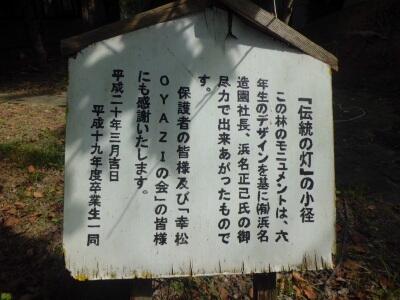 『伝統の灯』の小径
この林のモニュメントは、六
年生のデザインを基に㈲浜名
造園社長、浜名正己氏の御
尽力で出来あがったもので
す。
保護者の皆様及び「幸松
OYAZIの会」の皆様
にも感謝いたします。
平成二十年三月吉日
平成十九年度卒業生一同